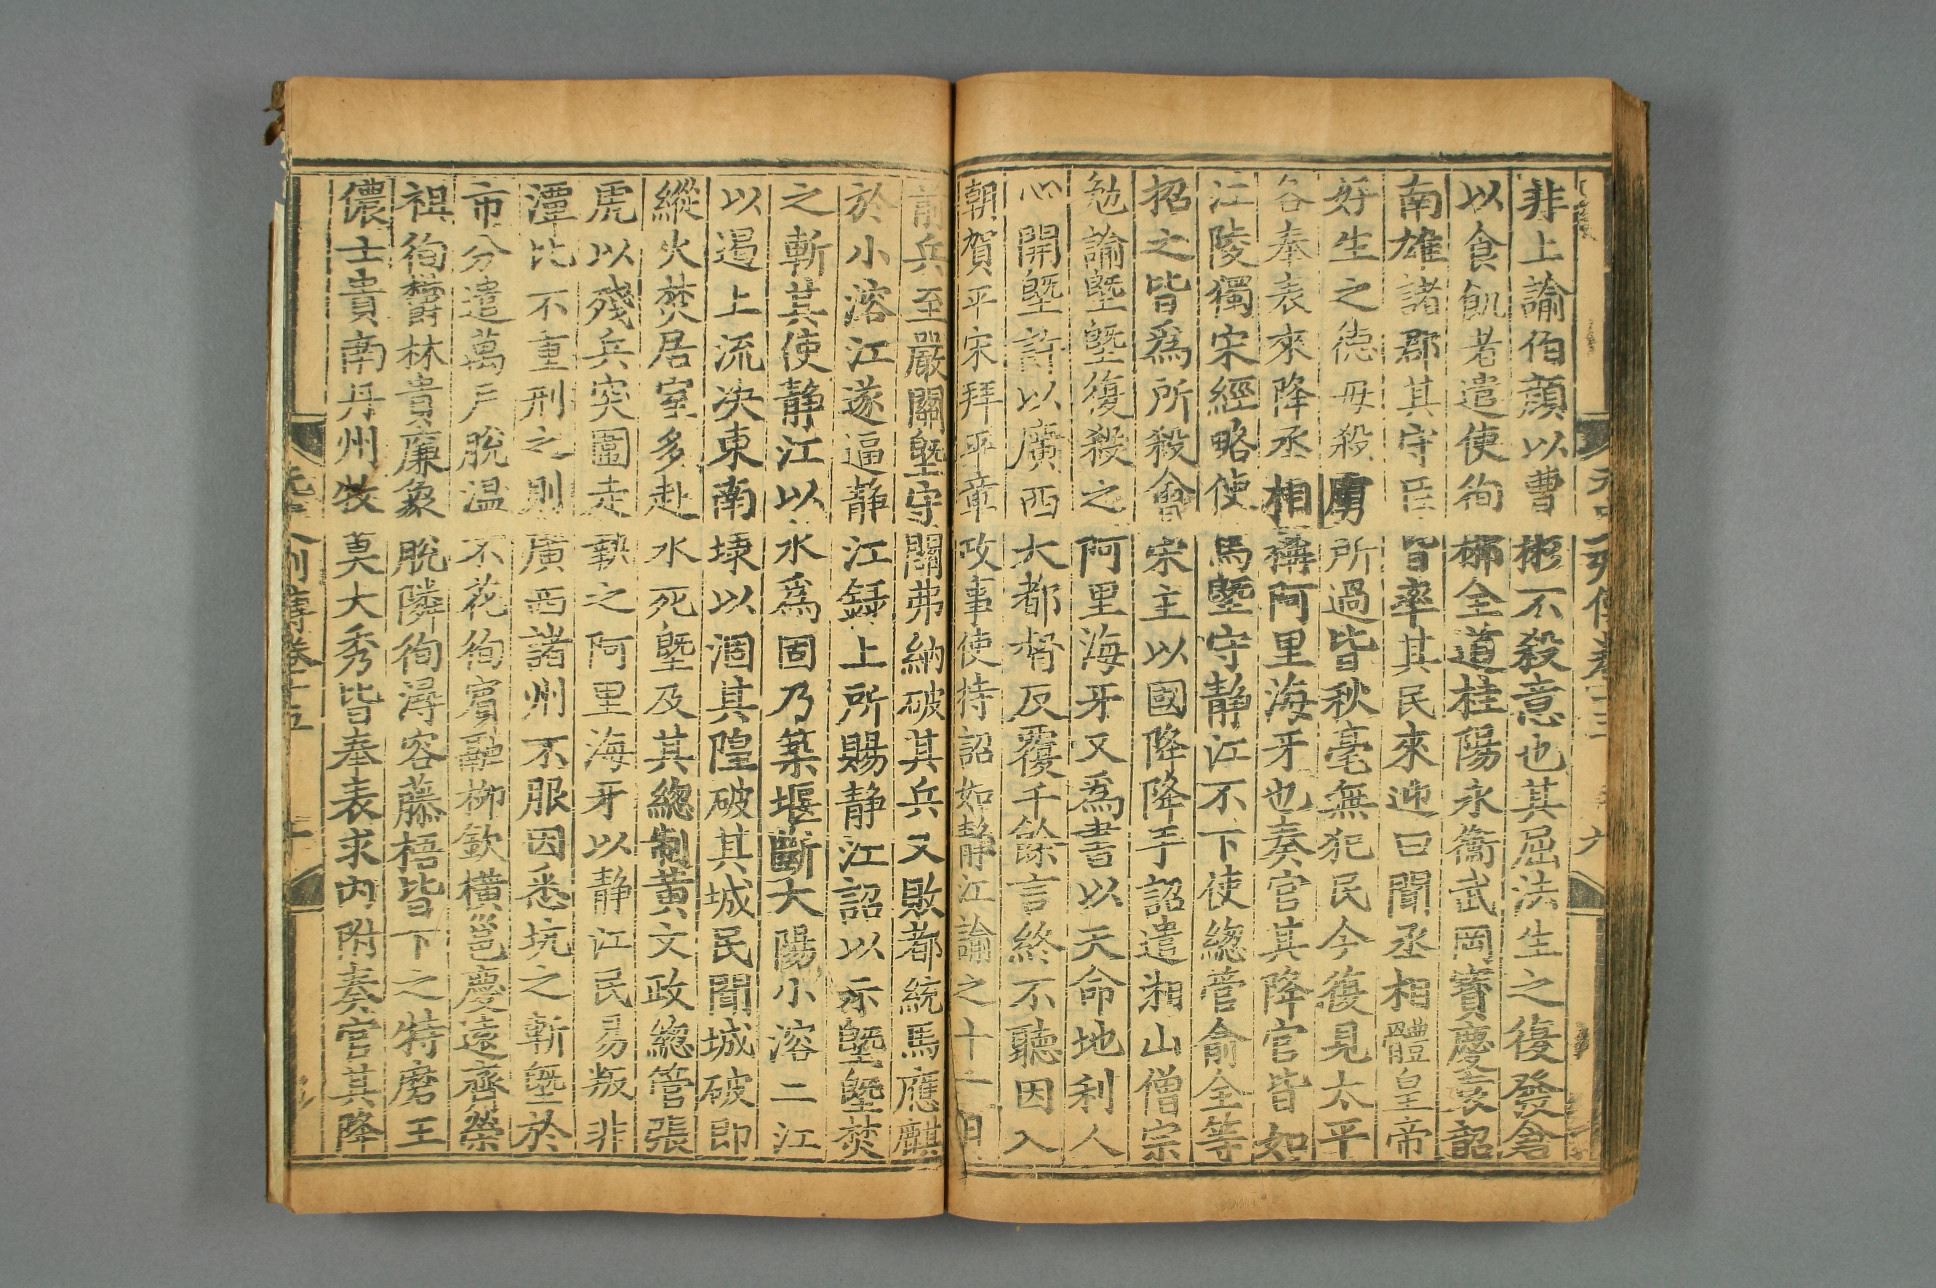 非上諭伯顔以曹彬不殺意也其屈法生之復發倉
以食飢者遣使徇郴全道桂陽永衡武岡寳慶袁韶
南雄諸郡其守臣皆率其民來迎曰聞丞相體皇帝
好生之德毋殺虜所過皆秋毫無犯民今復見太平
各奉表來降丞相稱阿里海牙也奏官其降官皆如
江陵獨宋經略使馬塈守静江不下使總管俞全等
招之皆爲所殺會宋主以國降降手詔遣湘山僧宗
勉諭塈塈復殺之阿里海牙又爲書以天命地利人
心開塈許以廣西大都督反覆千餘言終不聽因入
朝賀平宋拜平章政事使持詔如静江諭之十一月
前兵至嚴關塈守關弗納破其兵又敗都統馬應麒
於小溶江遂逼静江録上所賜静江詔以示塈塈焚
之斬其使静江以水爲固乃築堰斷大陽小溶二江
以遏上流决東南埭以涸其隍破其城民聞城破即
縱火焚居室多赴水死塈及其總制黄文政總管張
虎以殘兵突圍走執之阿里海牙以静江民易叛非
潭比不重刑之則廣西諸州不服因悉坑之斬塈於
市分遣萬戶脫温不花徇賓融柳欽横邕慶遠齊榮
祖徇鬱林貴廉象脫隣徇潯容藤梧皆下之特磨王
儂士貴南丹州牧莫大秀皆奉表求内附奏官其降
列傳卷十五